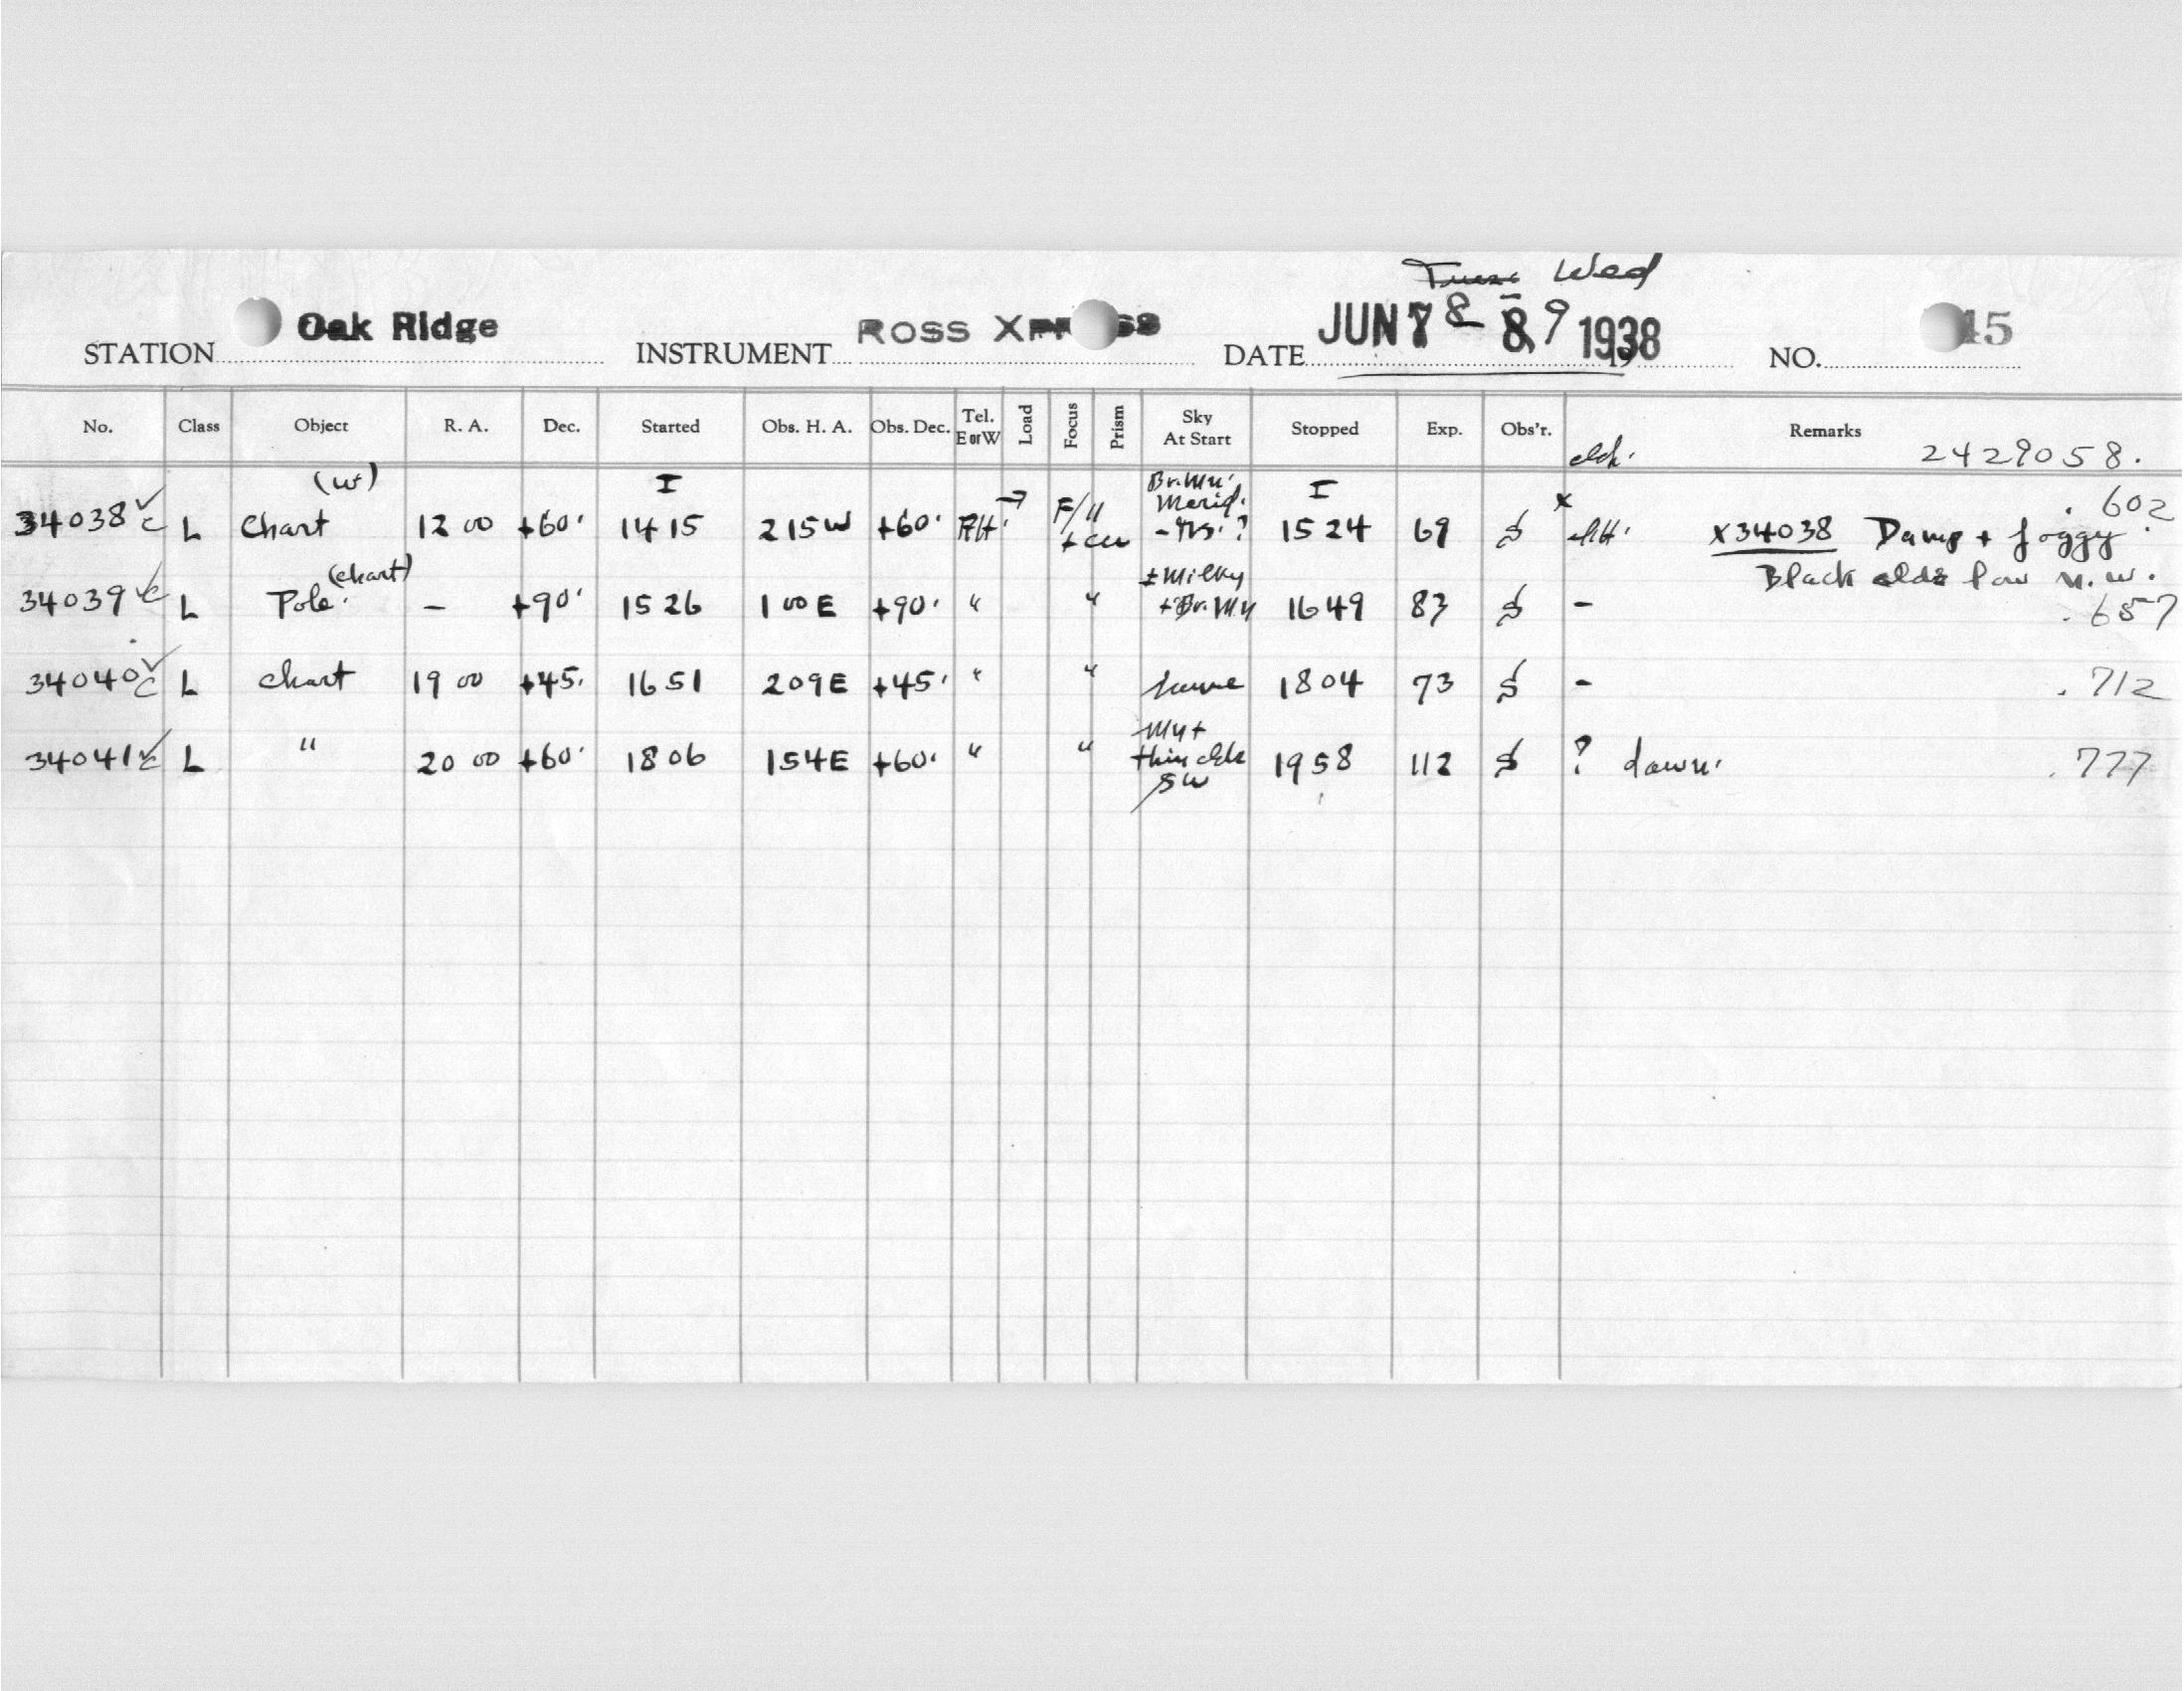 Tues. Wed
STATION Oak Ridge INSTRUMENT ROSS DATE JUN 7 8 - 8 9 1938 NO. 45
No. Class Object R. A. Dec. Started Obs. H. A. Obs. Dec. Tel. E or W Load Focus Prism Sky At Start Stopped Exp. Obs'r. Remarks
cld. 2429058.
(W) I Br. Mn. Merid. I .602
34038 c L Chart 12 00 +60° 14 15 2 15 W +60° → F/11 15 24 69 $ x x34038 Damp + foggy
Black clds low N.W.
34039 c L Pole (chart) - +90° 15 26 1 00 E +90° " " ± Milky + Br. Mn 16 49 83 $ - .657
34040 c L Chart 19 00 +45° 16 51 2 09 E +45° " " same 18 04 73 $ - .712
34041 c L " 20 00 +60° 18 06 1 54 E +60° " " thin clds SW 19 58 112 $ ? dawn. .777